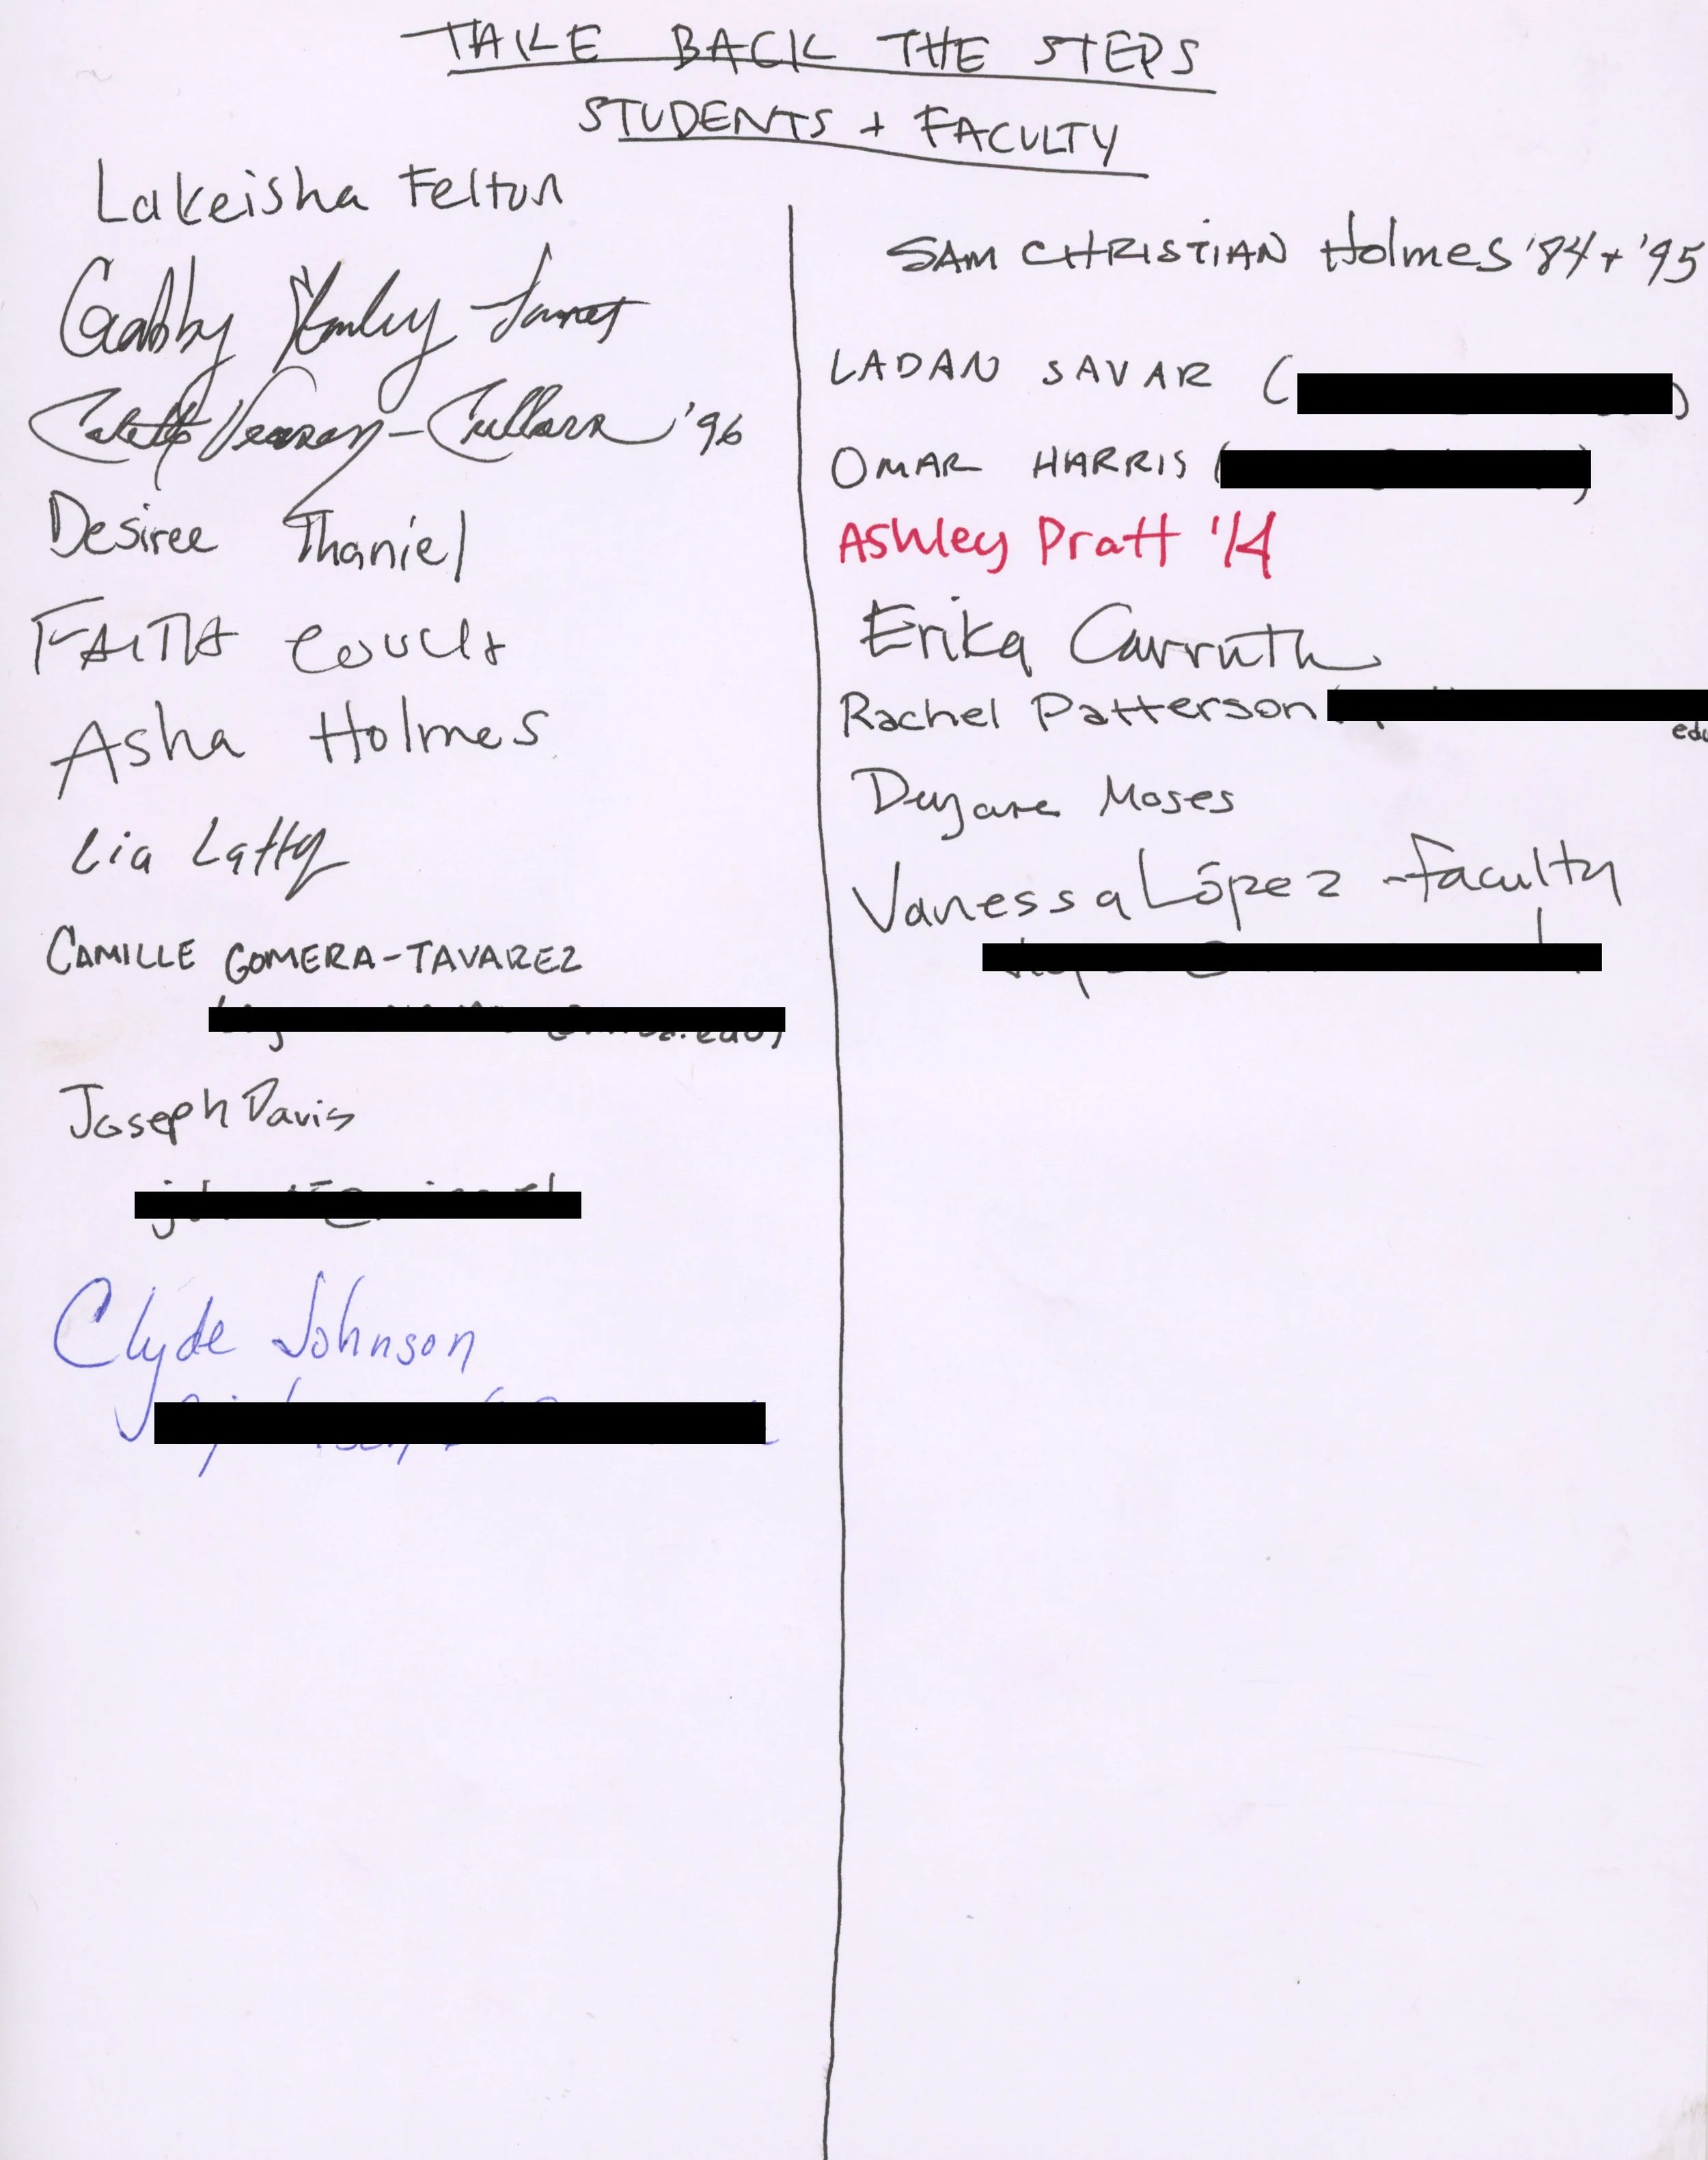 TAKE BACK THE STEPS
STUDENTS + FACULTY
Lakeisha Felton
Gabby
'96
Desiree Thaniel
FAITH
Asha Holmes
Lia Latty
CAMILLE GOMERA-TAVAREZ
Joseph Davis
Clyde Johnson
SAM CHRISTIAN Holmes '84 + '95
LADAN SAVAR (
OMAR HARRIS (
Ashley Pratt '14
Erika Carruth
Rachel Patterson
edu
Moses
Vanessa López - faculty